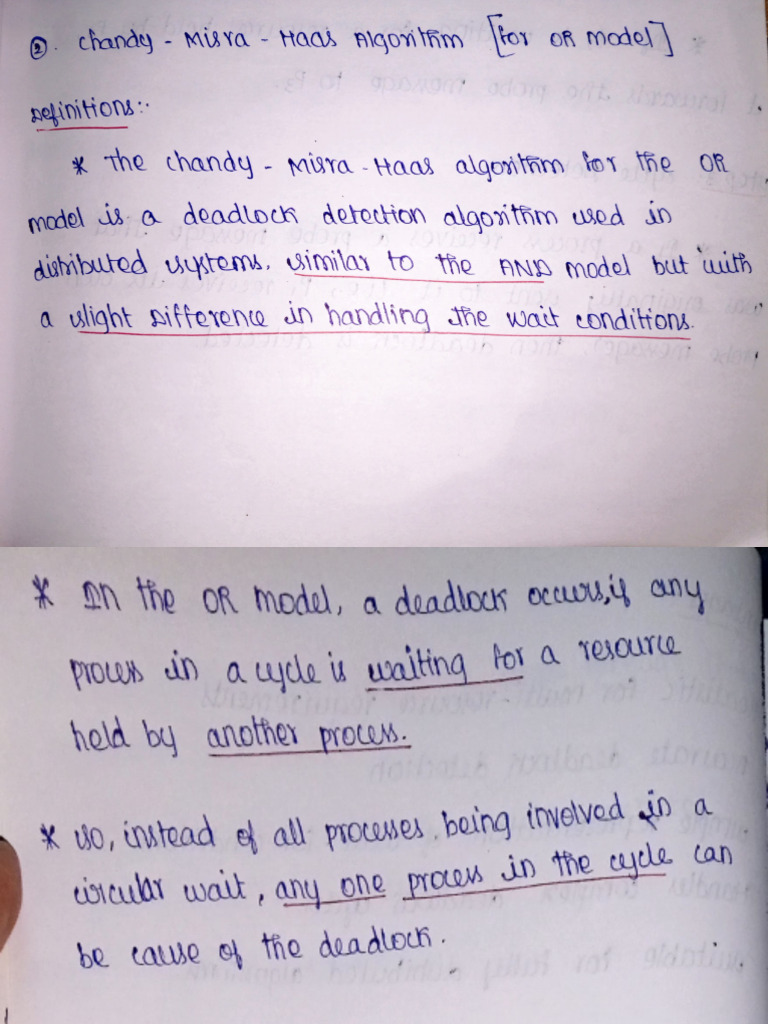 ②. Chandy - Misra - Haas Algorithm [for OR model]
Definitions:-
* The chandy - Misra - Haas algorithm for the OR
model is a deadlock detection algorithm used in
distributed systems, similar to the AND model but with
a slight Difference in handling the wait conditions.
* In the OR model, a deadlock occurs, if any
process in a cycle is waiting for a resource
held by another process.
* so, instead of all processes being involved in a
circular wait, any one process in the cycle can
be cause of the deadlock.